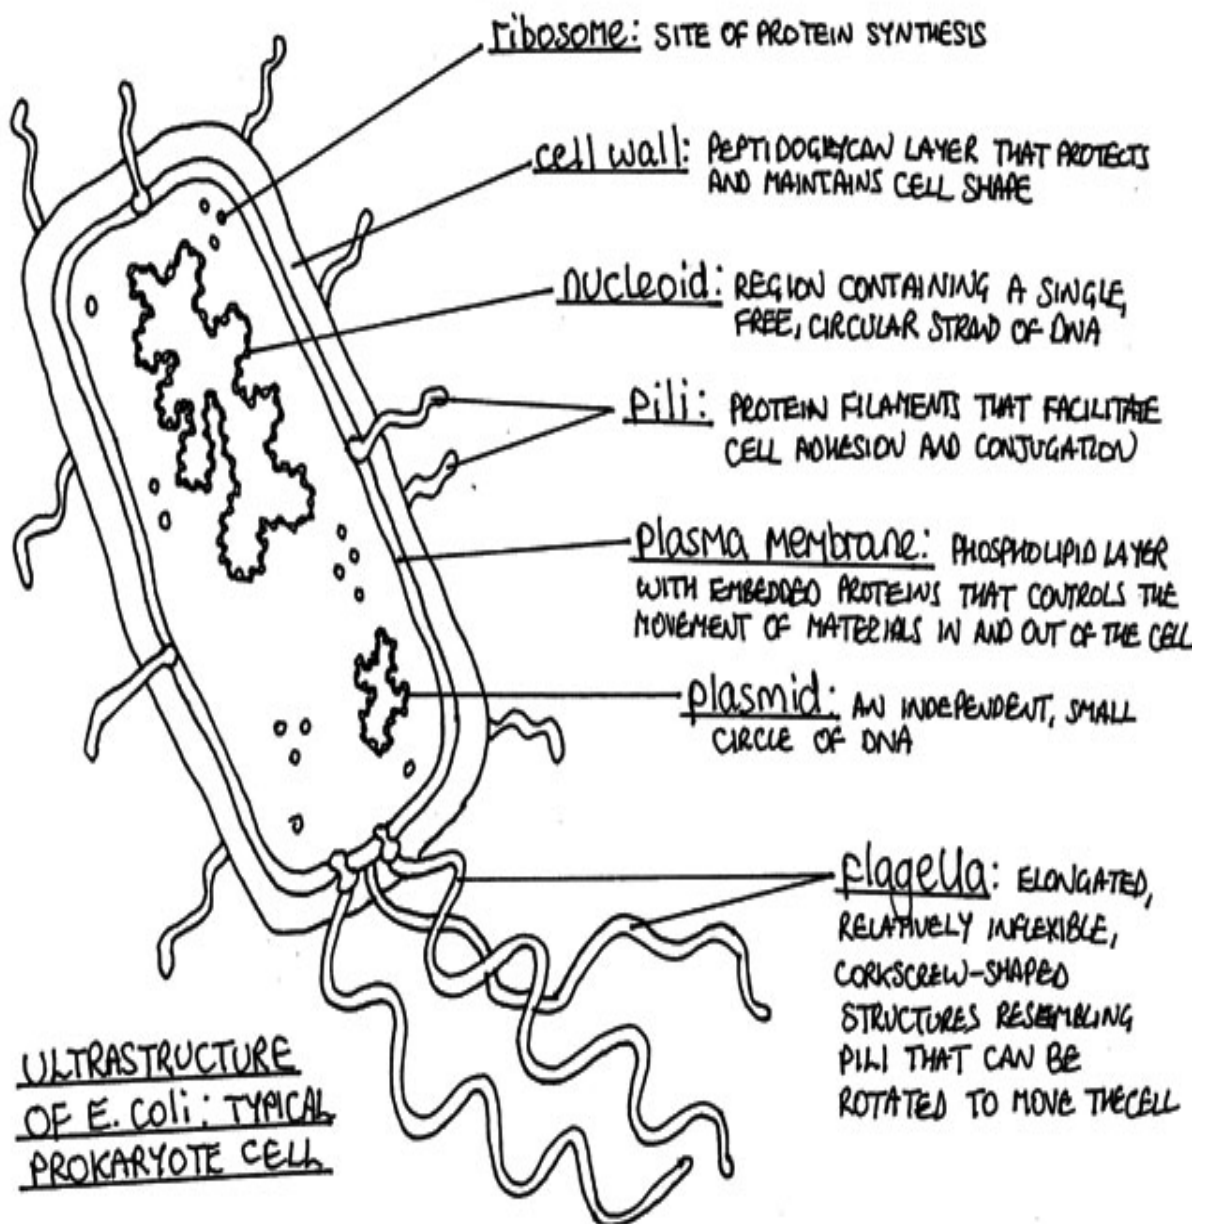 ribosome: SITE OF PROTEIN SYNTHESIS
cell wall: PEPTIDOGLYCAN LAYER THAT PROTECTS
AND MAINTAINS CELL SHAPE
nucleoid: REGION CONTAINING A SINGLE,
FREE, CIRCULAR STRAND OF DNA
Pili: PROTEIN FILAMENTS THAT FACILITATE
CELL ADHESION AND CONJUGATION
Plasma membrane: PHOSPHOLIPID LAYER
WITH EMBEDDED PROTEINS THAT CONTROLS THE
MOVEMENT OF MATERIALS IN AND OUT OF THE CELL
plasmid: AN INDEPENDENT, SMALL
CIRCLE OF DNA
flagella: ELONGATED,
RELATIVELY INFLEXIBLE,
CORKSCREW-SHAPED
STRUCTURES RESEMBLING
PILI THAT CAN BE
ROTATED TO MOVE THE CELL
ULTRASTRUCTURE
OF E. Coli: TYPICAL
PROKARYOTE CELL